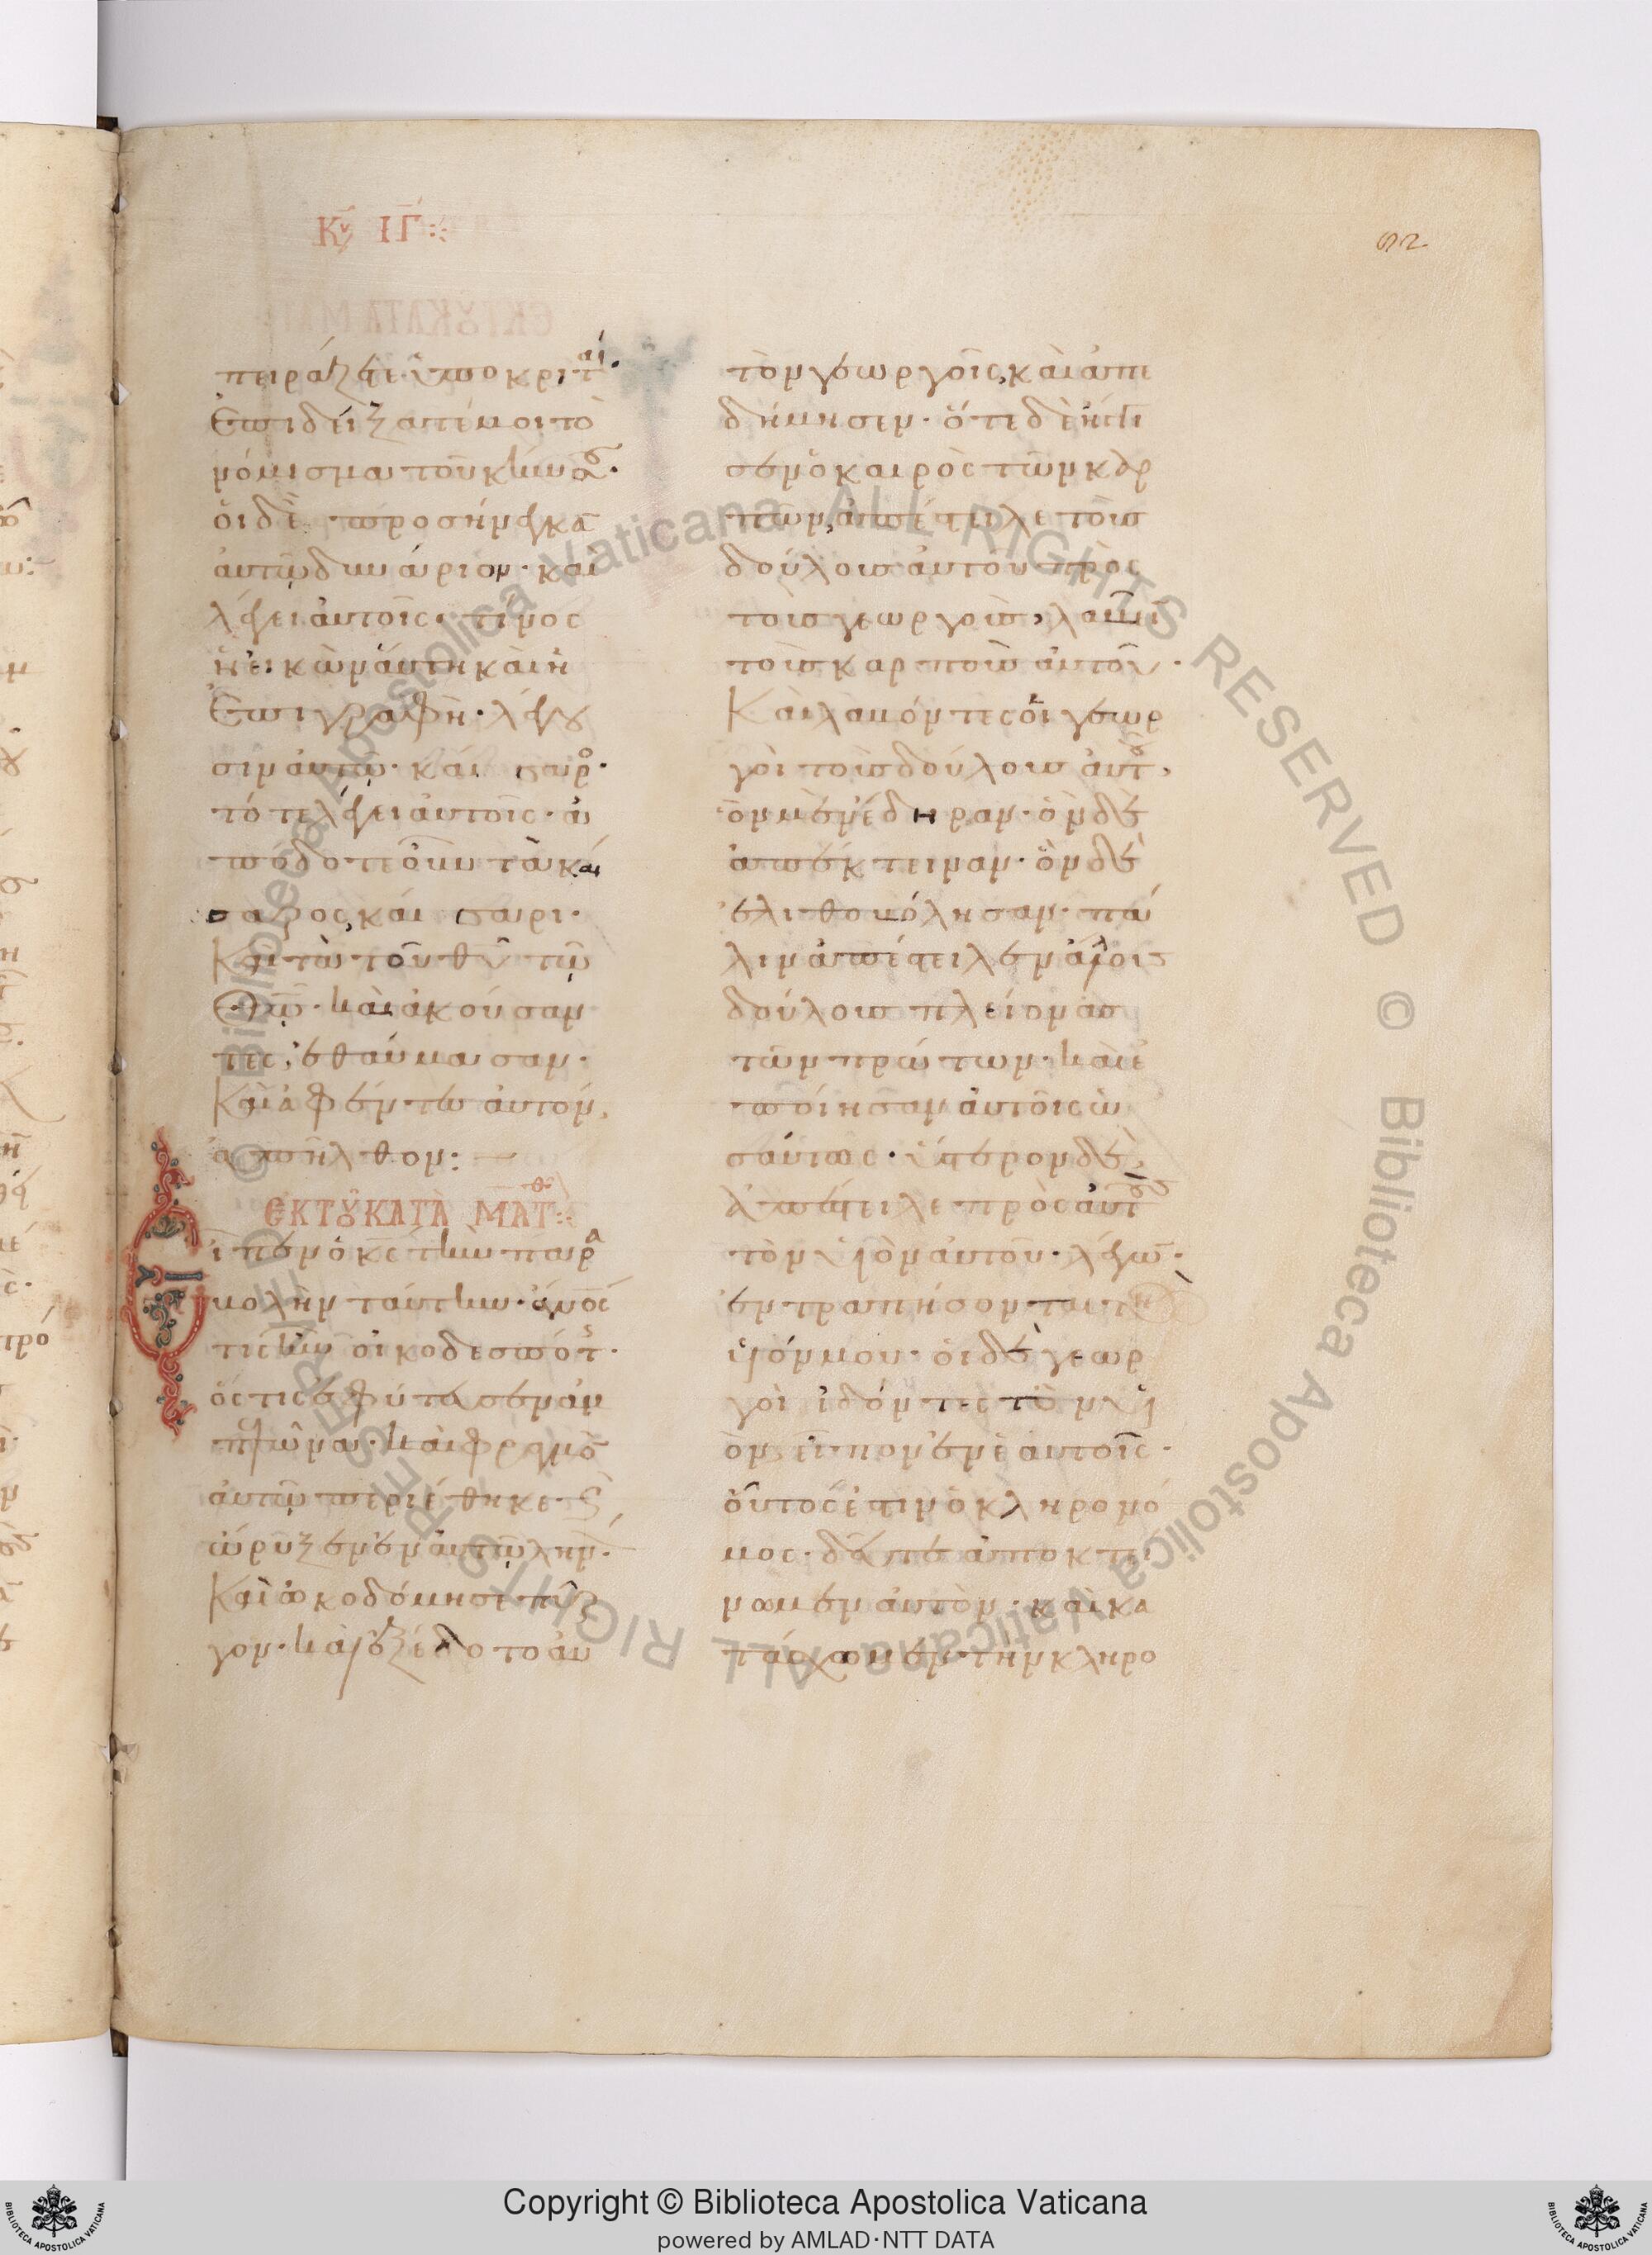 Κυ ΙΓ
62
πειράζετε ὑποκριταί·
ἐπιδείξατέ μοι τὸ
νόμισμα τοῦ κήνσου·
οἱ δὲ προσήνεγκαν
αὐτῷ δηνάριον· καὶ
λέγει αὐτοῖς· τίνος
ἡ εἰκὼν αὕτη καὶ ἡ
ἐπιγραφή· λέγου
σιν αὐτῷ· καίσαρος·
τότε λέγει αὐτοῖς· ἀ
πόδοτε οὖν τὰ καί
σαρος, καίσαρι·
Καὶ τὰ τοῦ θυ τῷ
θω· καὶ ἀκούσαν
τες, ἐθαύμασαν·
Καὶ ἀφέντες αὐτόν,
ἀπῆλθον:
ΕΚ ΤΟΥ ΚΑΤΑ ΜΑΤΘ
Εἶπεν ὁ κς τὴν παρα
βολὴν ταύτην· ἄνος
τις ἦν οἰκοδεσπότης·
ὅστις ἐφύτευσεν ἀμ
πελῶνα· καὶ φραγμὸν
αὐτῷ περιέθηκε· καὶ
ὤρυξεν ἐν αὐτῷ ληνόν·
Καὶ ὠκοδόμησε πύρ
γον· καὶ ἐξέδοτο αὐ
τὸν γεωργοῖς, καὶ ἀπε
δήμησεν· ὅτε δὲ ἤγγι
σεν ὁ καιρὸς τῶν καρ
πῶν, ἀπέστειλε τοὺς
δούλους αὐτοῦ πρὸς
τοὺς γεωργοὺς, λαβεῖν
τοὺς καρποὺς αὐτοῦ·
Καὶ λαβόντες οἱ γεωρ
γοὶ τοὺς δούλους αὐτοῦ,
ὃν μὲν ἔδηραν· ὃν δὲ
ἀπέκτειναν· ὃν δὲ
ἐλιθοβόλησαν· πά
λιν ἀπέστειλεν ἄλλους
δούλους πλείονας
τῶν πρώτων· καὶ ἐ
ποίησαν αὐτοῖς ὡ
σαύτως· ὕστερον δὲ,
ἀπέστειλε πρὸς αὐτοὺς
τὸν υἱὸν αὐτοῦ· λέγων·
ἐντραπήσονται τὸν
υἱόν μου· οἱ δὲ γεωρ
γοὶ ἰδόντες τὸν υἱ
όν, εἶπον ἐν ἑαυτοῖς·
οὗτός ἐστιν ὁ κληρονό
μος· δεῦτε ἀποκτεί
νωμεν αὐτόν· καὶ κα
τάσχωμεν τὴν κληρο
Copyright © Biblioteca Apostolica Vaticana
powered by AMLAD·NTT DATA
© Biblioteca Apostolica Vaticana ALL RIGHTS RESERVED © Biblioteca Apostolica Vaticana ALL RIGHTS RESERVED